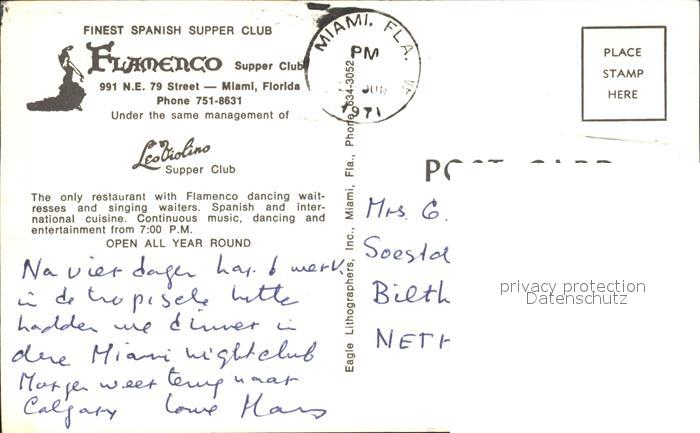 FINEST SPANISH SUPPER CLUB
FLAMENCO Supper Club
991 N.E. 79 Street — Miami, Florida
Phone 751-8631
Under the same management of
Les Violins
Supper Club
The only restaurant with Flamenco dancing wait-
resses and singing waiters. Spanish and inter-
national cuisine. Continuous music, dancing and
entertainment from 7:00 P.M.
OPEN ALL YEAR ROUND
Na vier dagen hard werk
in de tropische hitte
hadden we dinner in
deze Miami nightclub
Morgen weer terug naar
Calgary love Hans
Eagle Lithographers, Inc., Miami, Fla., Phone 634-3052
MIAMI, FLA.
PM
JUN
1971
PLACE
STAMP
HERE
POST CARD
Mrs. G.
Soestd
Bilth
NETH
privacy protection
Datenschutz